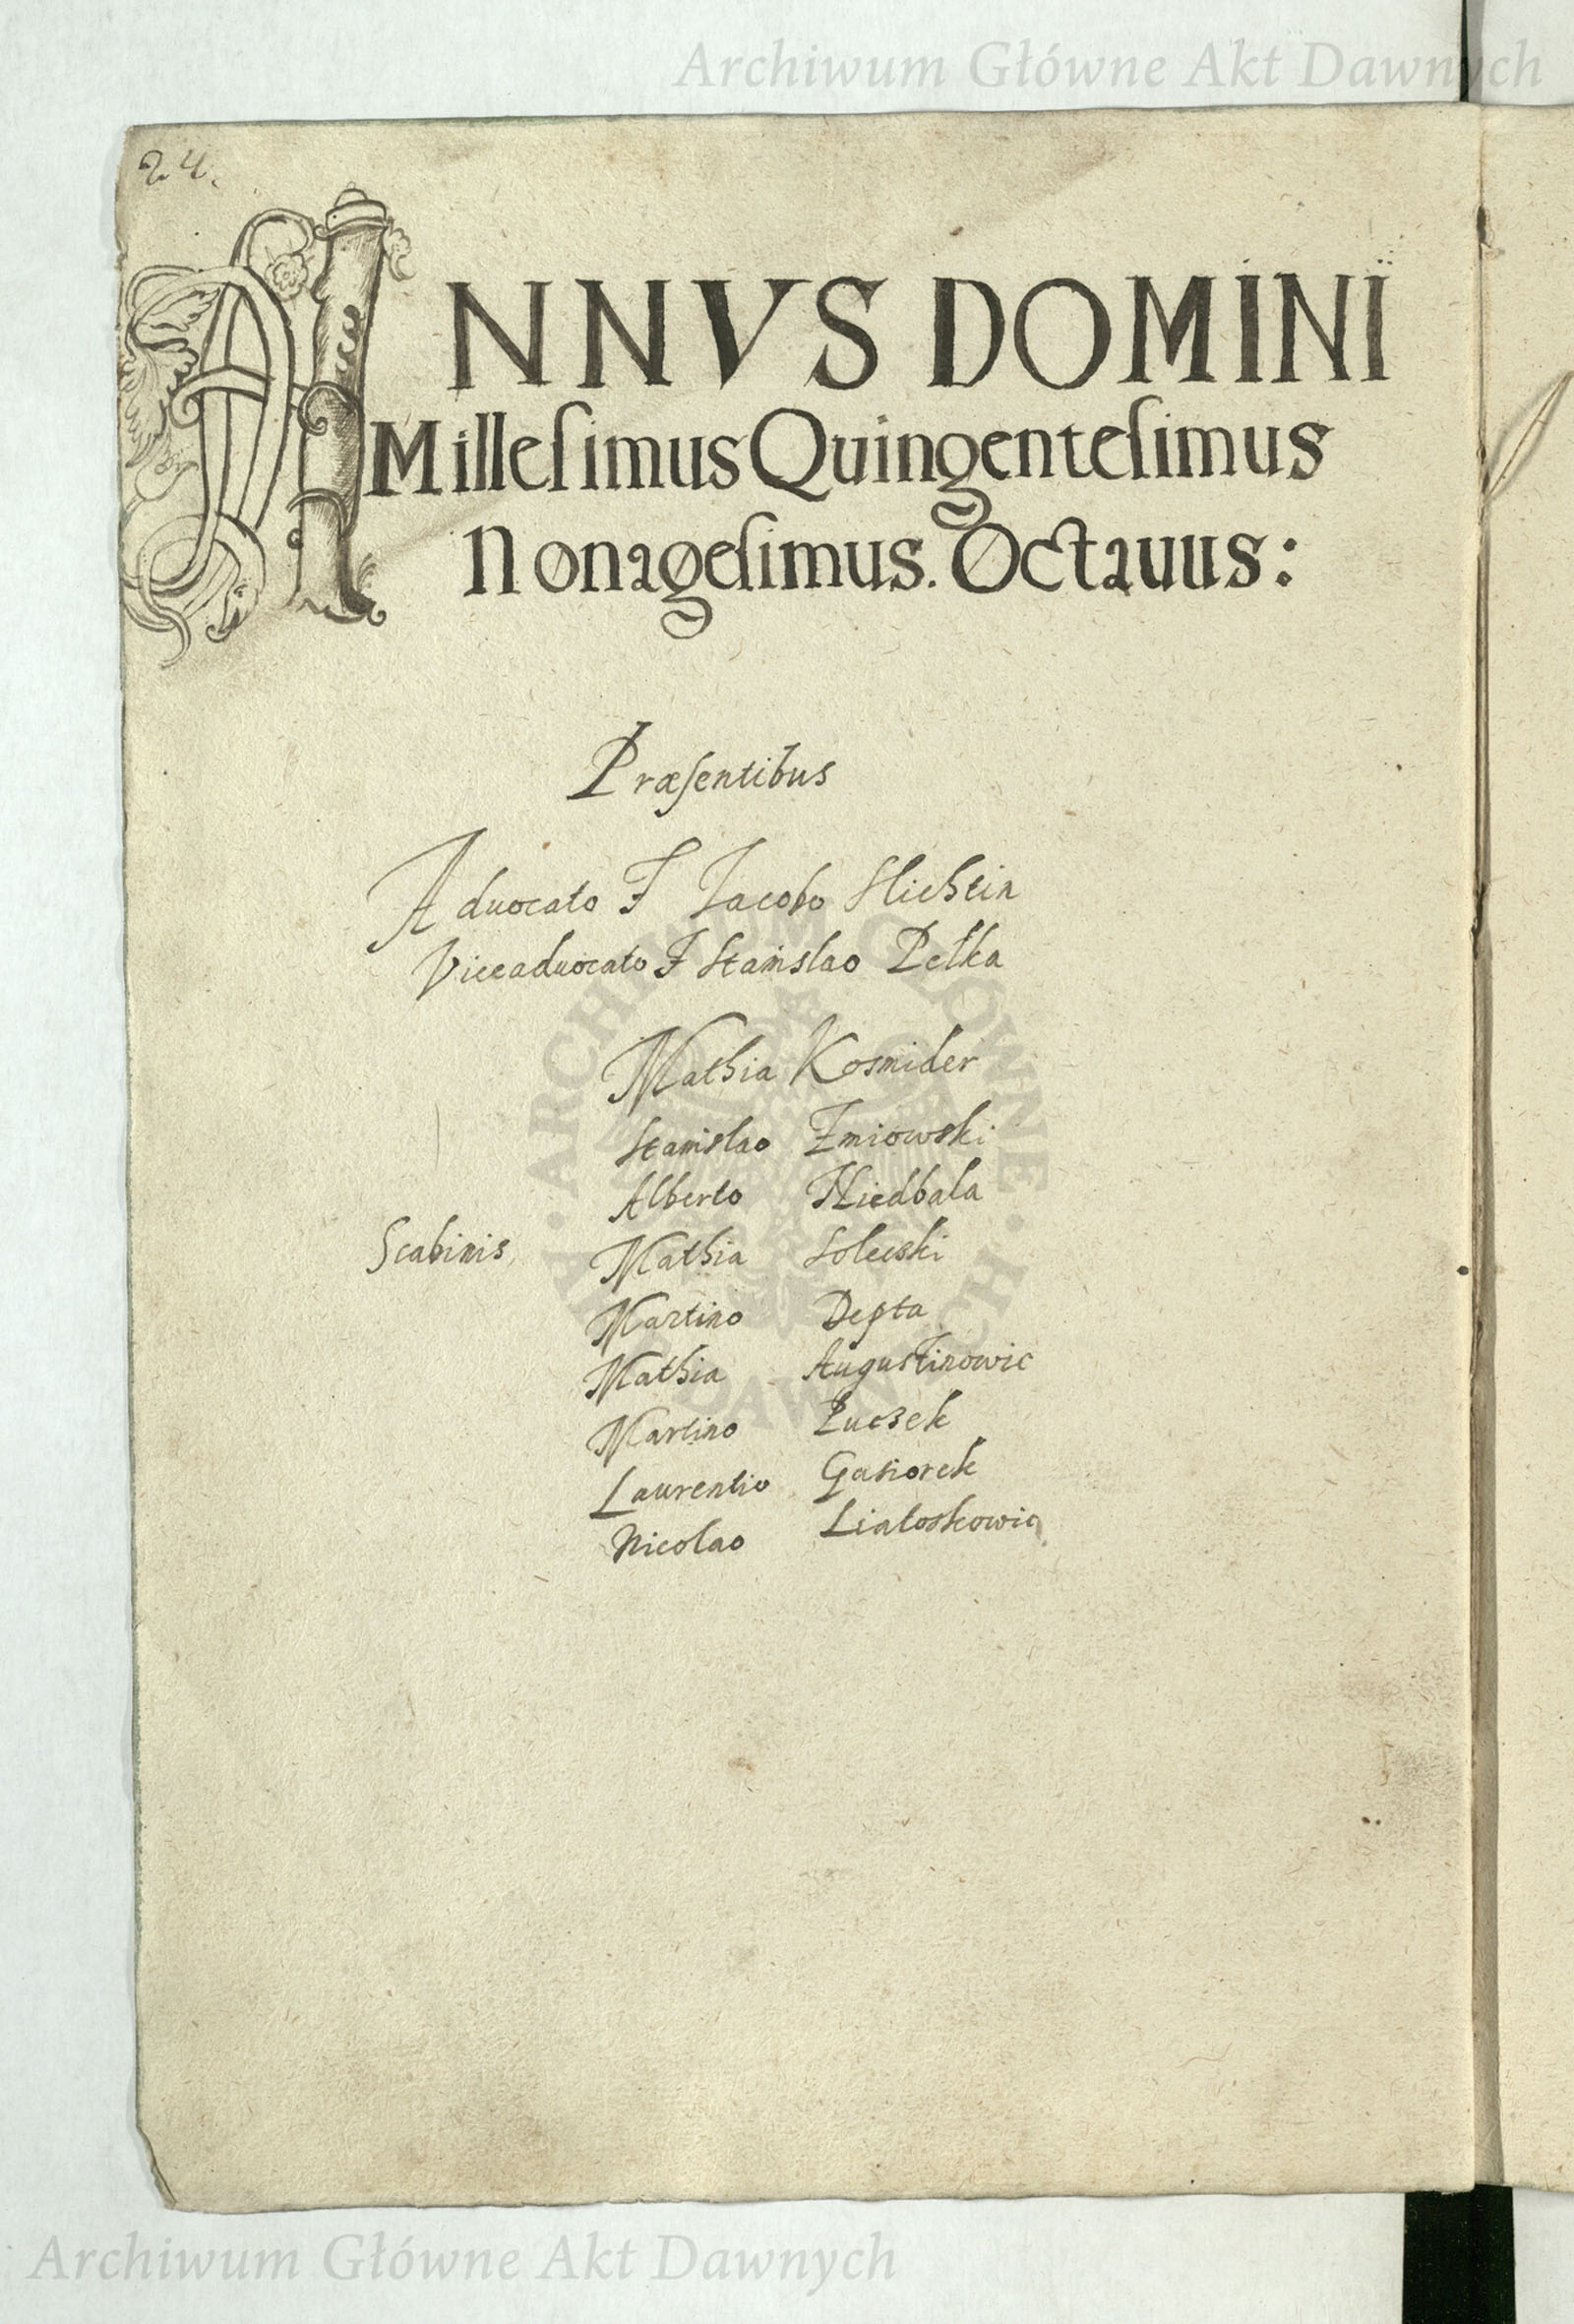 Archiwum Główne Akt Dawnych
24.
ANNVS DOMINI
Millesimus Quingentesimus
Nonagesimus. Octauus:
Præsentibus
Aduocato F Iacobo Slichtin
Viceaduocato F Stanislao Pelka
Mathia Kosmider
Stanislao Zmiowski
Alberto Niedbala
Scabinis Mathia Solecski
Martino Depta
Mathia Augustinowic
Martino Łuczek
Laurentio Gasiorek
Nicolao Lialoskowic
ARCHIWUM GŁÓWNE AKT DAWNYCH
Archiwum Główne Akt Dawnych